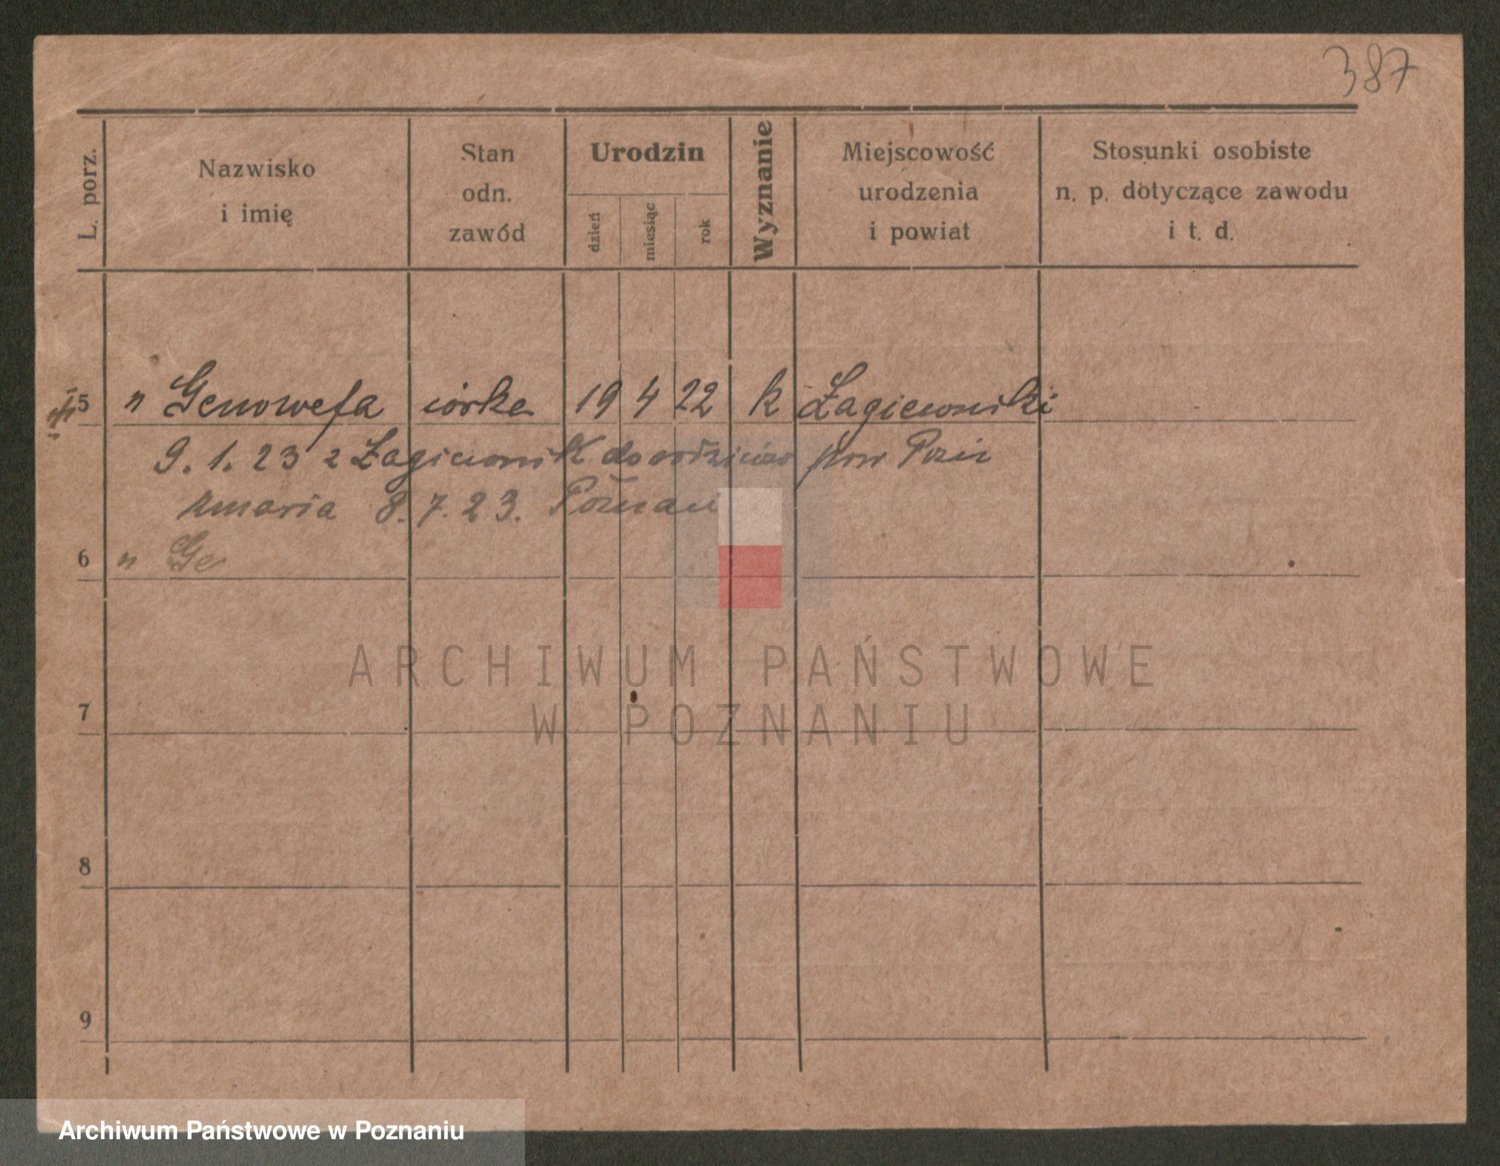 387
L. porz.
Nazwisko
i imię
Stan
odn.
zawód
Urodzin
dzień
miesiąc
rok
Wyznanie
Miejscowość
urodzenia
i powiat
Stosunki osobiste
n. p. dotyczące zawodu
i t. d.
5 " Genowefa córka 19 4 22 k Łagiewniki
9. 1. 23 z Łagiewnik do rodziców pow Pozn
zmarła 8. 7. 23. Poznań
6 " Ge
ARCHIWUM PAŃSTWOWE
W POZNANIU
7
8
9
Archiwum Państwowe w Poznaniu